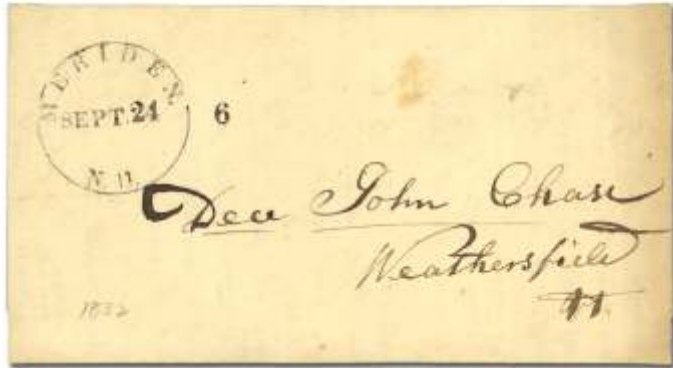 MERIDEN
SEPT. 24
6
N H
Dea John Chase
Weathersfield
Vt.
1832